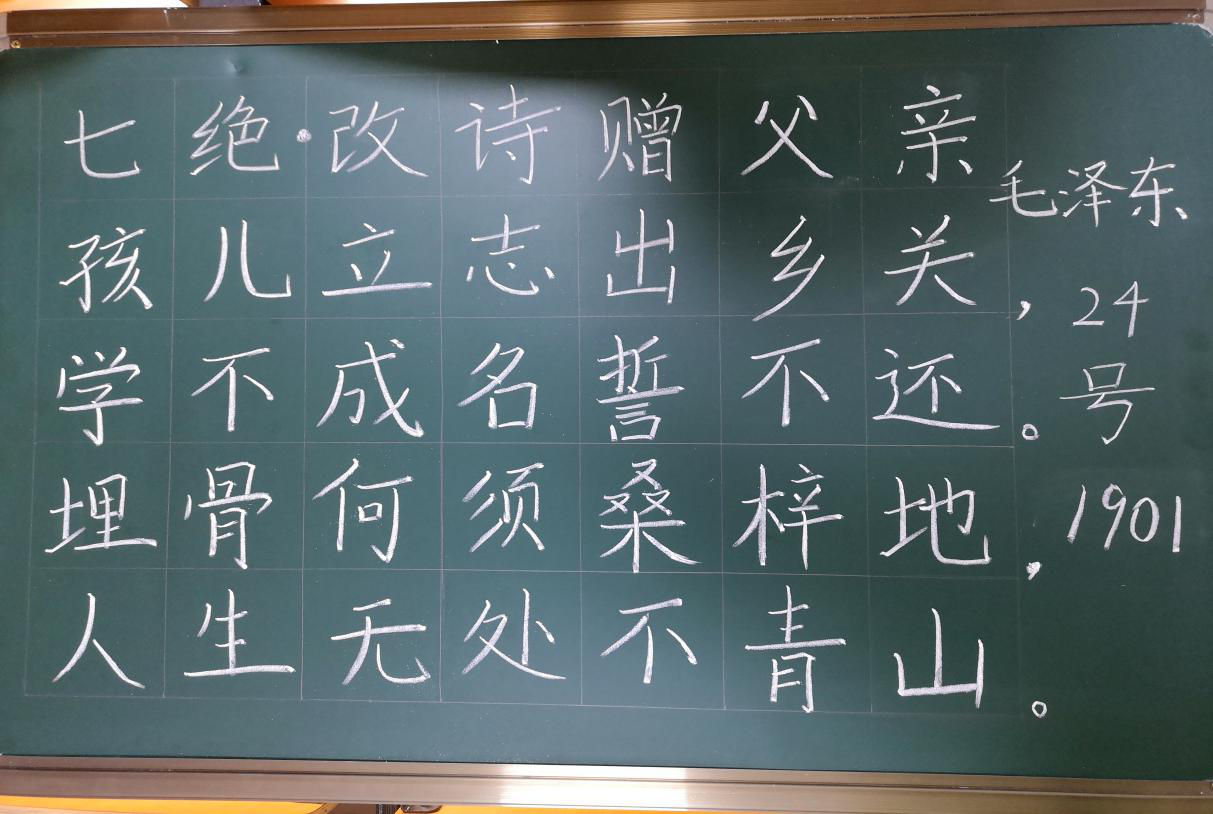 七绝·改诗赠父亲
毛泽东
孩儿立志出乡关，
学不成名誓不还。
埋骨何须桑梓地，
人生无处不青山。
24
号
1901